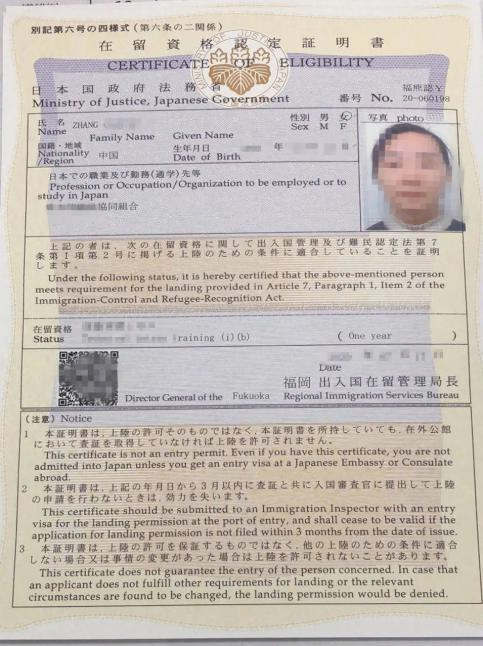 別記第六号の四様式(第六条の二関係)
在留資格認定証明書
CERTIFICATE OF ELIGIBILITY
MINISTRY OF JUSTICE JAPAN
日本国政府法務省
Ministry of Justice, Japanese Government
福熊認Y
番号 No. 20-060198
氏名 ZHANG
Name
Family Name Given Name
性別 男 女
Sex M F
写真 photo
国籍・地域
Nationality 中国
/Region
生年月日 年
Date of Birth
日本での職業及び勤務(通学)先等
Profession or Occupation/Organization to be employed or to
study in Japan
協同組合
上記の者は、次の在留資格に関して出入国管理及び難民認定法第7
条第1項第2号に掲げる上陸のための条件に適合していることを証明
します。
Under the following status, it is hereby certified that the above-mentioned person
meets requirement for the landing provided in Article 7, Paragraph 1, Item 2 of the
Immigration-Control and Refugee-Recognition Act.
在留資格
Status raining (i)(b) ( One year )
Date
福岡 出入国在留管理局長
Director General of the Fukuoka Regional Immigration Services Bureau
(注意) Notice
1 本証明書は、上陸の許可そのものではなく、本証明書を所持していても、在外公館
において査証を取得していなければ上陸を許可されません。
This certificate is not an entry permit. Even if you have this certificate, you are not
admitted into Japan unless you get an entry visa at a Japanese Embassy or Consulate
abroad.
2 本証明書は、上記の年月日から3月以内に査証と共に入国審査官に提出して上陸
の申請を行わないときは、効力を失います。
This certificate should be submitted to an Immigration Inspector with an entry
visa for the landing permission at the port of entry, and shall cease to be valid if the
application for landing permission is not filed within 3 months from the date of issue.
3 本証明書は、上陸の許可を保証するものではなく、他の上陸のための条件に適合
しない場合又は事情の変更があった場合は上陸を許可されないことがあります。
This certificate does not guarantee the entry of the person concerned. In case that
an applicant does not fulfill other requirements for landing or the relevant
circumstances are found to be changed, the landing permission would be denied.